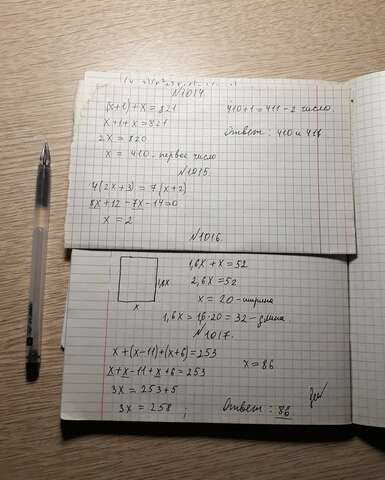 N1014
(x+1)+x=821
x+1+x=821
2x=820
x = 410-первое число
410+1=411-2 число.
Ответ: 410 и 411
N1015.
4(2x+3)=7(x+2)
8x+12-7x-14=0
x=2
N1016.
1,6x
x
1,6x+x=52
2,6x=52
x=20-ширина
1,6x=1,6·20=32-длина
N1017.
x+(x-11)+(x+6)=253
x+x-11+x+6=253
3x=253+5
3x=258;
x=86
Ответ: 86.